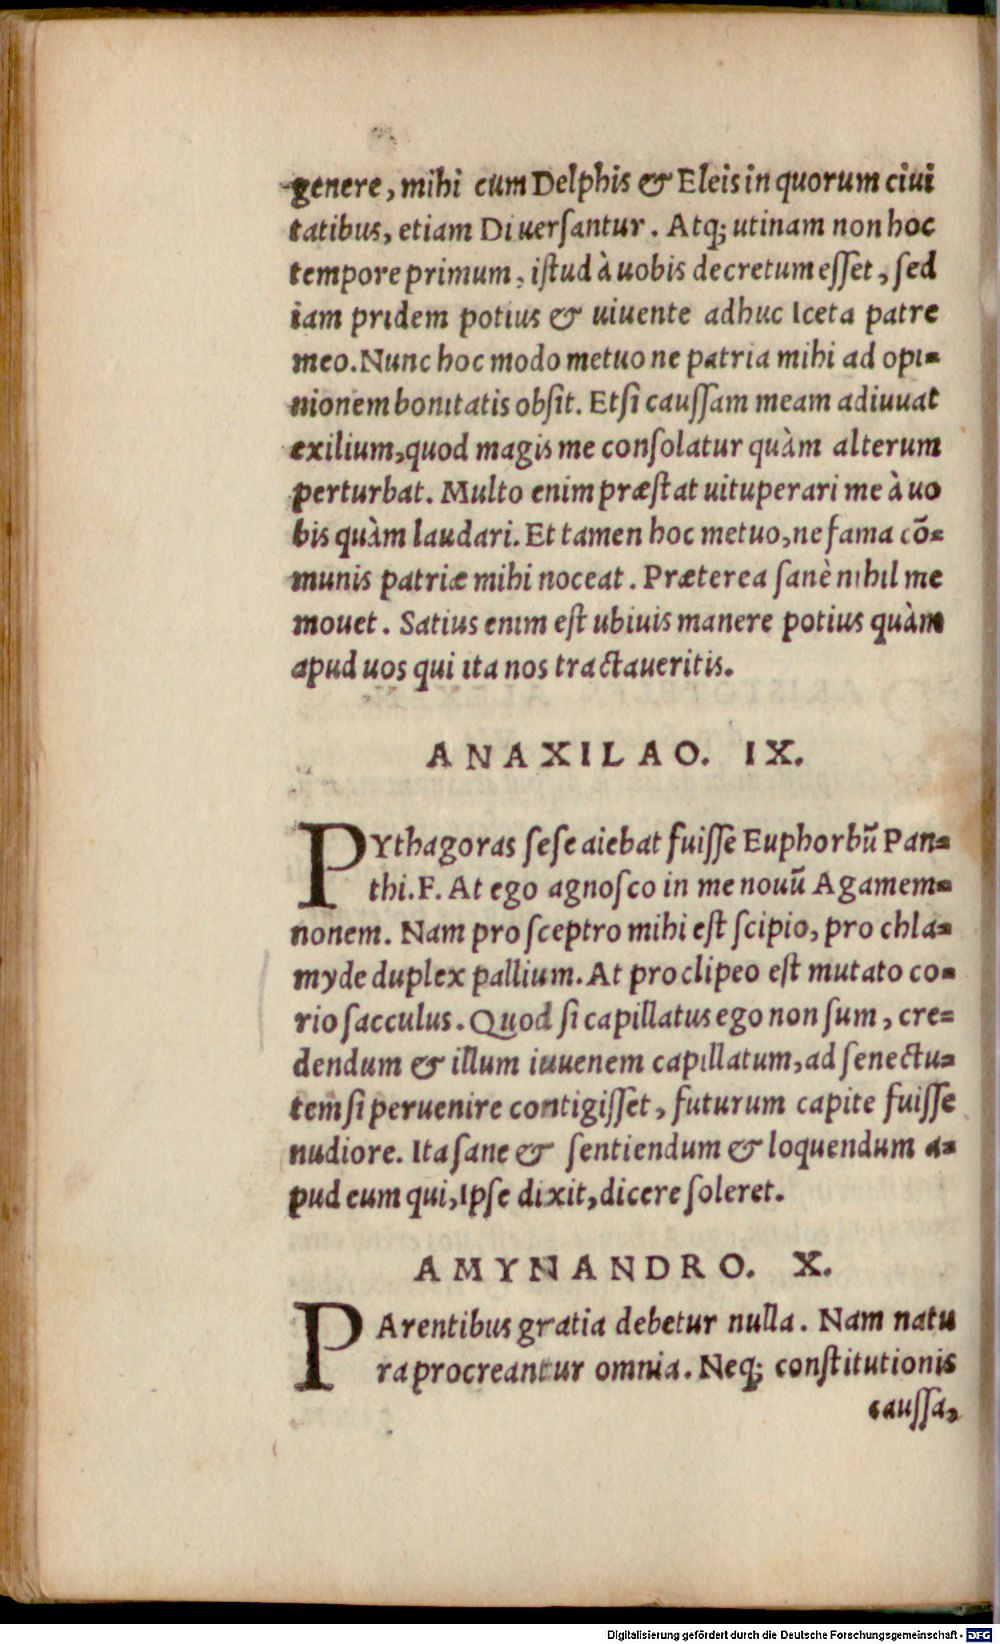 genere, mihi cum Delphis & Eleis in quorum ciui
tatibus, etiam Diuersantur. Atq; utinam non hoc
tempore primum, istud à uobis decretum esset, sed
iam pridem potius & uiuente adhuc Iceta patre
meo. Nunc hoc modo metuo ne patria mihi ad opi-
nionem bonitatis obsit. Etsi caussam meam adiuuat
exilium, quod magis me consolatur quàm alterum
perturbat. Multo enim præstat uituperari me à uo
bis quàm laudari. Et tamen hoc metuo, ne fama cō-
munis patriæ mihi noceat. Præterea sanè nihil me
mouet. Satius enim est ubiuis manere potius quàm
apud uos qui ita nos tractaueritis.
ANAXILAO. IX.
PYthagoras sese aiebat fuisse Euphorbū Pan-
thi. F. At ego agnosco in me nouū Agamem-
nonem. Nam pro sceptro mihi est scipio, pro chla-
myde duplex pallium. At pro clipeo est mutato co-
rio sacculus. Quod si capillatus ego non sum, cre-
dendum & illum iuuenem capillatum, ad senectu-
tem si peruenire contigisset, futurum capite fuisse
nudiore. Ita sane & sentiendum & loquendum a-
pud eum qui, Ipse dixit, dicere soleret.
AMYNANDRO. X.
PArentibus gratia debetur nulla. Nam natu
ra procreantur omnia. Neq; constitutionis
caussa,
Digitalisierung gefördert durch die Deutsche Forschungsgemeinschaft - DFG